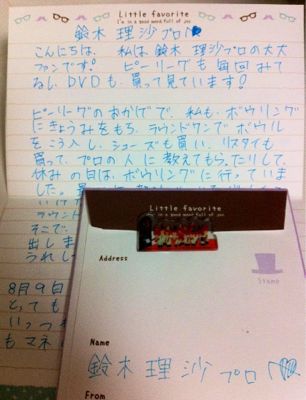 Little favorite
I'm in a good mood full of joy
鈴木理沙プロへ
こんにちは、私は鈴木理沙プロの大大
ファンです! ピーリーグも毎回みて
るし、DVDも、買って見ています!
ピーリーグのおかげで、私も、ボウリング
にきょうみをもち、ラウンドワンで、ボウル
をこう入し、シューズも買い、リスタイも
買って、プロの人に教えてもらったりして、
休みの日は、ボウリングに行っていま
した。
ラウンド
そこで、
出しま
うれし
8月9日
とっても
いつ
もマネ
Little favorite
I'm in a good mood full of joy
Address
Stamp
Name
鈴木理沙プロへ
From